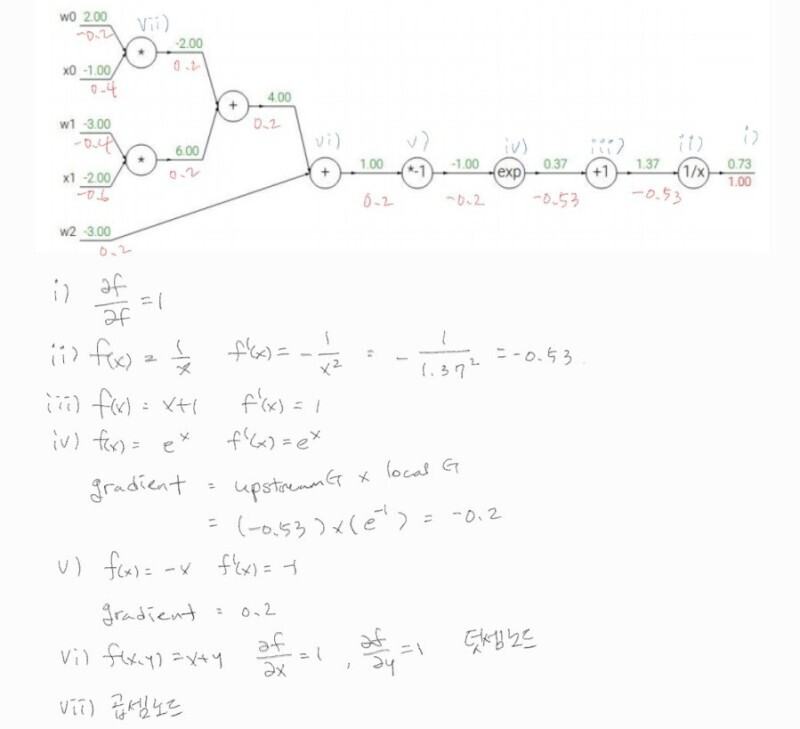 w0 2.00 vii)
-0.2 * -2.00
x0 -1.00 0.2
0.4 + 4.00
w1 -3.00 0.2
-0.4 6.00 vi) v) iv) iii) ii) i)
* 0.2 1.00 -1.00 0.37 1.37 0.73
x1 -2.00 + *-1 exp +1 1/x 1.00
-0.6 0.2 -0.2 -0.53 -0.53
w2 -3.00
0.2
i) ∂f/∂f = 1
ii) f(x) = 1/x f'(x) = - 1/x² = - 1/1.37² = -0.53
iii) f(x) = x+1 f'(x) = 1
iv) f(x) = eˣ f'(x) = eˣ
gradient = upstreamG x local G
= (-0.53) x (e⁻¹) = -0.2
v) f(x) = -x f'(x) = -1
gradient = 0.2
vi) f(x,y) = x+y ∂f/∂x = 1, ∂f/∂y = 1 덧셈노드
vii) 곱셈노드